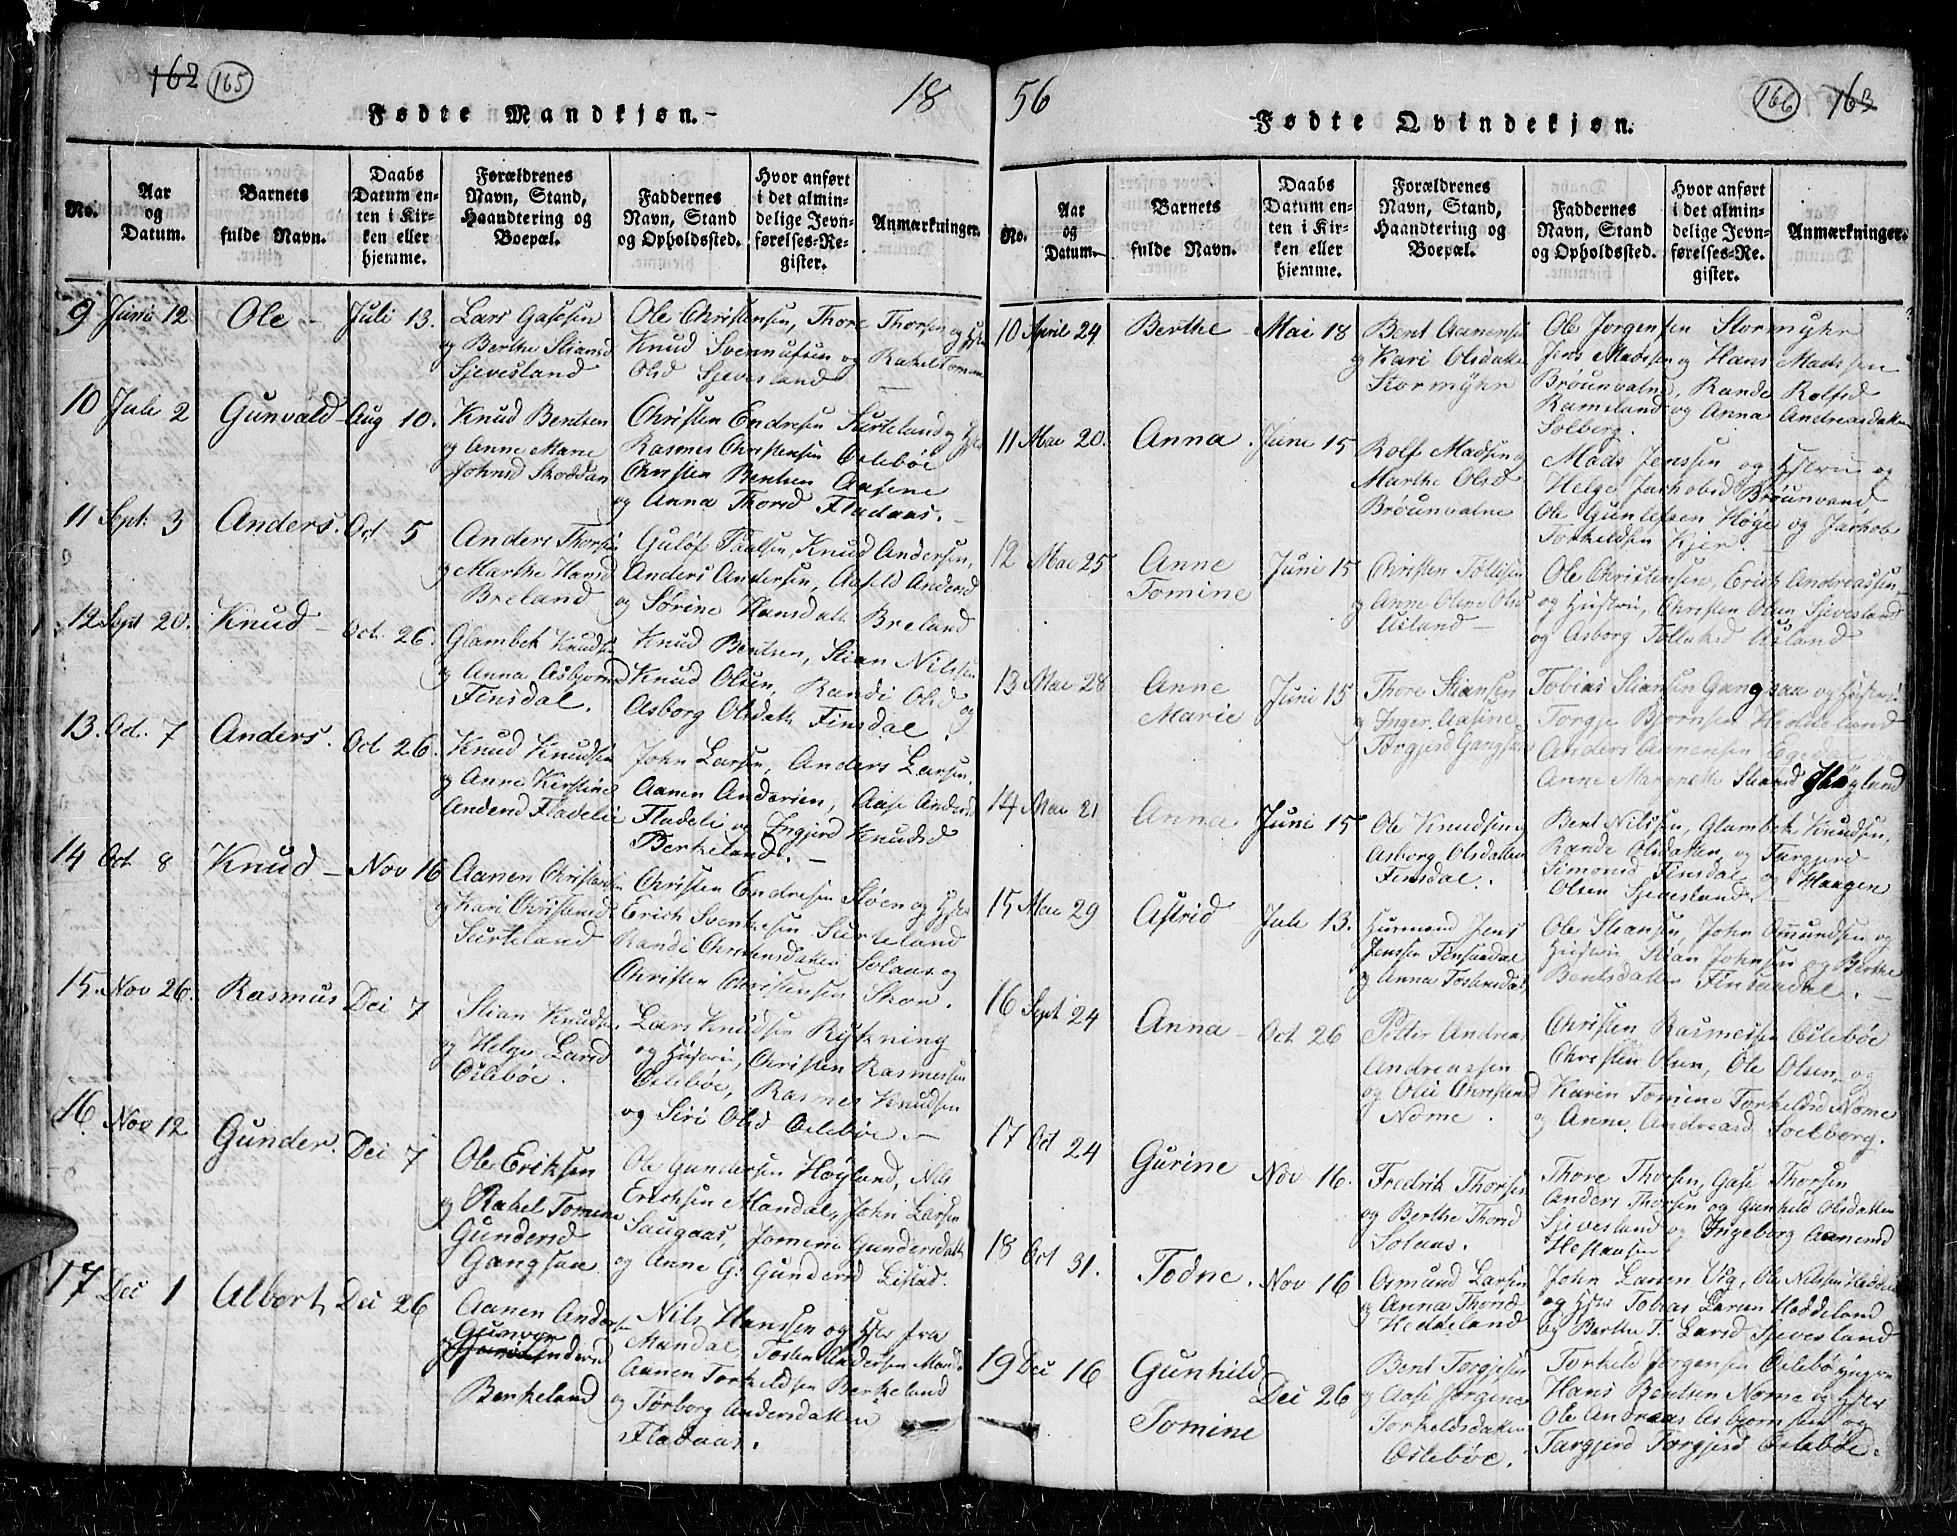 162 165
18
Fødte Mandkjøn.
No.
Aar og Datum.
Barnets fulde Navn.
Daabs Datum enten i Kirken eller hjemme.
Forældrenes Navn, Stand, Haandtering og Boepæl.
Faddernes Navn, Stand og Opholdssted.
Hvor anført i det almindelige Jevnførelses-Register.
Anmærkninger.
9 Juni 12 Ole Juli 13.
Lars Gasesen
og Berthe Stiansd
Sjevesland
Ole Christensen, Thore Thorsen og Hstr
Knud Svennufsen og Rahel Tomine
Olsd Sjevesland
10 Juli 2 Gunvald Aug 10.
Knud Bentsen
og Anne Marie
Johnsd Skoddan
Christen Endresen Surteland og Hstr
Rasmus Christensen Oslebøe
Christen Bentsen Aasene
og Anna Thorsd Fladaas.
11 Sept: 3 Anders. Oct 5
Anders Thorsen
og Marthe Hansd
Breland
Guløf Paulsen, Knud Andersen,
Anders Andersen, Aaseld Andersd
og Sørine Hansdatt Breland
12 Sept 20. Knud Oct. 26.
Glambek Knudsen
og Anna Asbjornsd
Finsdal.
Knud Bentsen, Stian Nilssen
Knud Olsen, Randi Olsd og
Asborg Olsdatt Finsdal.
13. Oct. 7 Anders. Oct 26.
Knud Knudsen
og Anne Kirstine
Andersd Fladelie
John Larsen, Anders Larsen,
Aanen Andersen, Aase Andersd
Fladeli og Ingjerd Knudsd
Berkeland.
14 Oct 8 Knud Nov 16
Aanen Christensen
og Kari Christensd
Surteland
Christen Endresen Støen og Hstr
Erich Svenkesen Surteland
Randi Christensdatter Solaas og
Christen Christensen Skon.
15. Nov 26. Rasmus Dec 7
Stian Knudsen
og Helge Larsd
Oslebøe.
Lars Knudsen Rykning
og Hustru, Christen Rasmussen
Oslebøe, Rasmus Knudsen
og Siri Olsd Oslebøe.
16 Nov 12 Gunder. Dec 7
Ole Eriksen
og Rahel Tomine
Gundersd
Gangsaa
Ole Gundersen Høyland, Nils
Ericksen Mandal, John Larsen
Saugaas, Jomine Gundersdatt
og Anne G. Gundersd Listad.
17 Dec 1 Albert, Dec 26
Aanen Andersen
Gunvor
Andersd
Berkeland
Nils Hanssen og Hstr fra
Mandal, Tosten Andersen Mandal
Aanen Torkildsen Berkeland
og Tørborg Andersdatter
Fladaas.
56
166 163
Fødte Qvindekjøn.
No.
Aar og Datum.
Barnets fulde Navn.
Daabs Datum enten i Kirken eller hjemme.
Forældrenes Navn, Stand, Haandtering og Boepæl.
Faddernes Navn, Stand og Opholdssted.
Hvor anført i det almindelige Jevnførelses-Register.
Anmærkninger.
10 April 24 Berthe Mai 18
Bent Aanensen
og Kari Olsdatter
Stormyhr
Ole Jørgensen Stormyhr
Jens Madssen og Hans Madssen
Brøunvalne, Rande Rolfsd
Ramsland og Anna Andreasdatter
Solberg.
11 Mai 20. Anna. Juni 15
Rolf Madsen og
Marthe Olsd
Brøunvalne
Mads Jenssen og Hstru og
Helge Jachobsd Brøunvand
Ole Gunlefsen Høge og Jachob
Torkeldsen Kjer.
12 Mai 25 Anne Tomine Juni 15
Christen Tollisen
og Anne Oline Olsd
Usland
Ole Christensen, Erich Andreassen,
og Hustru, Christen Olsen Sjevesland
og Asborg Tollaksd Usland
13 Mai 28 Anne Marie Juni 15
Thore Stiansen
og Inger Aasine
Torgjersd Gangsaa
Tobias Stiansen Gangsaa og Hustru
Torgje Bjørnsen Heddeland
Anders Aanensen
Anne Marnethe Stiansd Høgland
14 Mai 21 Anna Juni 15
Ole Knudsen og
Asborg Olsdatter
Finsdal.
Bent Nilssen, Glambek Knudsen,
Rande Olsdatter og Targjerd
Simonsd Finsdal og Haagen
Olsen Sjevesland.
15 Mai 29 Astrid Juli 13.
Huusmand Jens
Jenssen Finsaadal
og Anna Tostensdatt
Ole Steansen, John Omundsen og
Hustru Stian Johnsen og Berthe
Bentsdatter Finsaadal.
16 Sept 24 Anna Oct 26
Petter Andreas
Andreassen
og Olu Christensd
Nome.
Christen Rasmussen Oslebøe
Christen Olsen, Ole Olsen, og
Karen Tomine Torkeldsd Nome
og Anne Andreasd Soelberg.
17 Oct 24 Gurine Nov 16.
Fredrik Thorsen
og Berthe Thorsd
Solaas.
Thore Thorsen, Gase Thorsen
Anders Thorsen og Gunhild Olsdatter
Sjevesland og Ingeborg Aanensd
Hestaasen
18 Oct 31. Todne. Nov 16
Osmund Larsen
og Anna Thorsd
Heddeland
John Larsen Vig, Ole Nilssen Heddeland
og Hstr Tobias Larsen Heddeland
og Berthe T. Larsd Sjevesland
19 Dec 16 Gunhild Tomine Dec 26
Bent Torgjesen
og Aase Jørgine
Torkeldsdatter
Oslebøe.
Torkeld Jørgensen Oslebø yngre
Hans Bentsen Nome og Hstr
Ole Andreas Asbjornsen og
Targjerd Torgjesd Oslebøe.